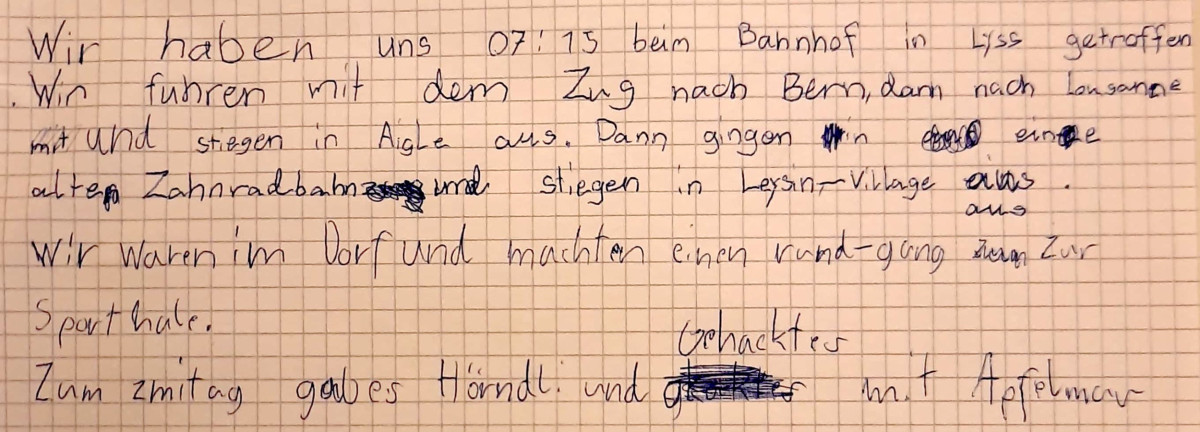 Wir haben uns 07:15 beim Bahnhof in Lyss getroffen
. Wir fuhren mit dem Zug nach Bern, dann nach Lousanne
mit und stiegen in Aigle aus. Dann gingen in eine
alten Zahnradbahn und stiegen in Leysin-Village aus.
aus
Wir waren im Dorf und machten einen rund-gang zum Zur
Sporthale.
Gehacktes
Zum zmitag gab es Hörndli und mit Apfelmar